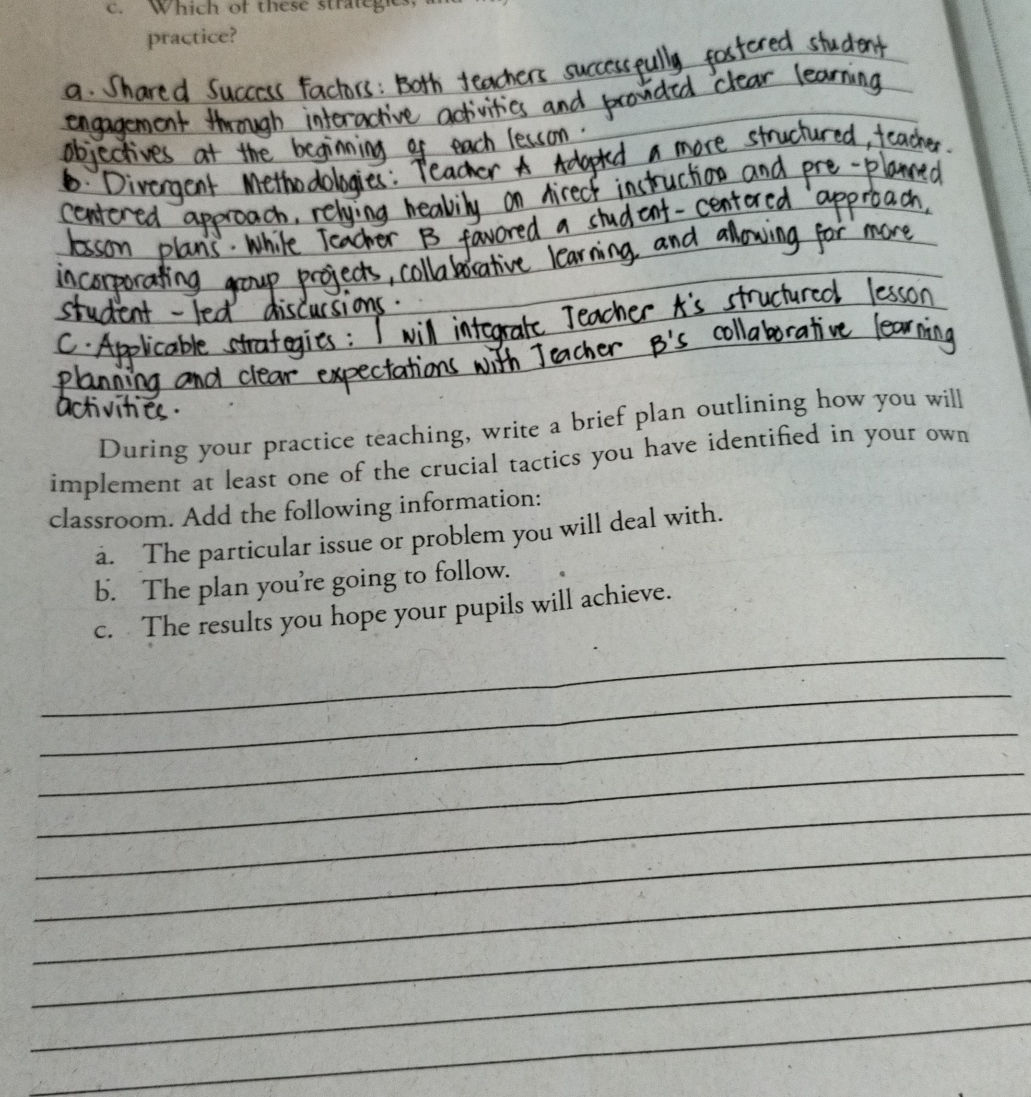 c. Which of these strategies,
practice?
a. Shared Success Factors: Both teachers successfully fostered student
engagement through interactive activities and provided clear learning
objectives at the beginning of each lesson.
b. Divergent Methodologies: Teacher A Adopted a more structured, teacher-
centered approach, relying heabily on direct instruction and pre-planned
lesson plans. While Teacher B favored a student-centered approach,
incorporating group projects, collaborative learning, and allowing for more
student-led discursions.
C. Applicable strategies: I will integrate Teacher A's structured lesson
planning and clear expectations with Teacher B's collaborative learning
activities.
During your practice teaching, write a brief plan outlining how you will
implement at least one of the crucial tactics you have identified in your own
classroom. Add the following information:
a. The particular issue or problem you will deal with.
b. The plan you're going to follow.
c. The results you hope your pupils will achieve.